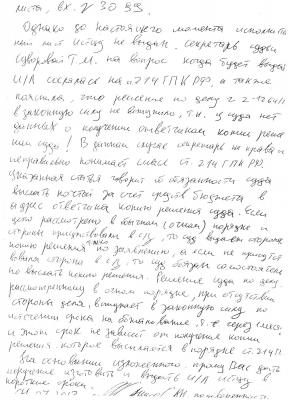 листа, вх. № 3059.
Однако до настоящего момента исполнитель
ный лист истцу не выдан. Секретарь судьи
Т.М. на вопрос когда будет выдан
И/Л сослалась на ст 214 ГПК РФ, а также
пояснила, что решение по делу 2-
в законную силу не вступило, т.к. у суда нет
данных о получении ответчиком копии реше
ния суда! В данном случае секретарь не права и
неправильно понимает смысл ст. 214 ГПК РФ.
Указанная статья говорит о обязанности суда
выслать почтой за счет средств бюджета в
адрес ответчика копию решения суда. Если
дело рассмотрено в обычном (очном) порядке и
стороны присутствовали в с/з, то суд выдает сторонам
копию решения по заявлению, а если не присутст
вовала сторона в с/з, то суд обязан самостоятель
но выслать копию решения. Решение суда по делу,
рассмотренному в очном порядке, при отсутствии
стороны дела, вступает в законную силу по
истечении срока на обжалование, т.е. через месяц
и этот срок не зависит от получения копии
решения, которое высылается в порядке ст. 214
На основании изложенного, прошу Вас дать
поручение изготовить и выдать И/Л истцу в
короткие сроки.
по доверенности.